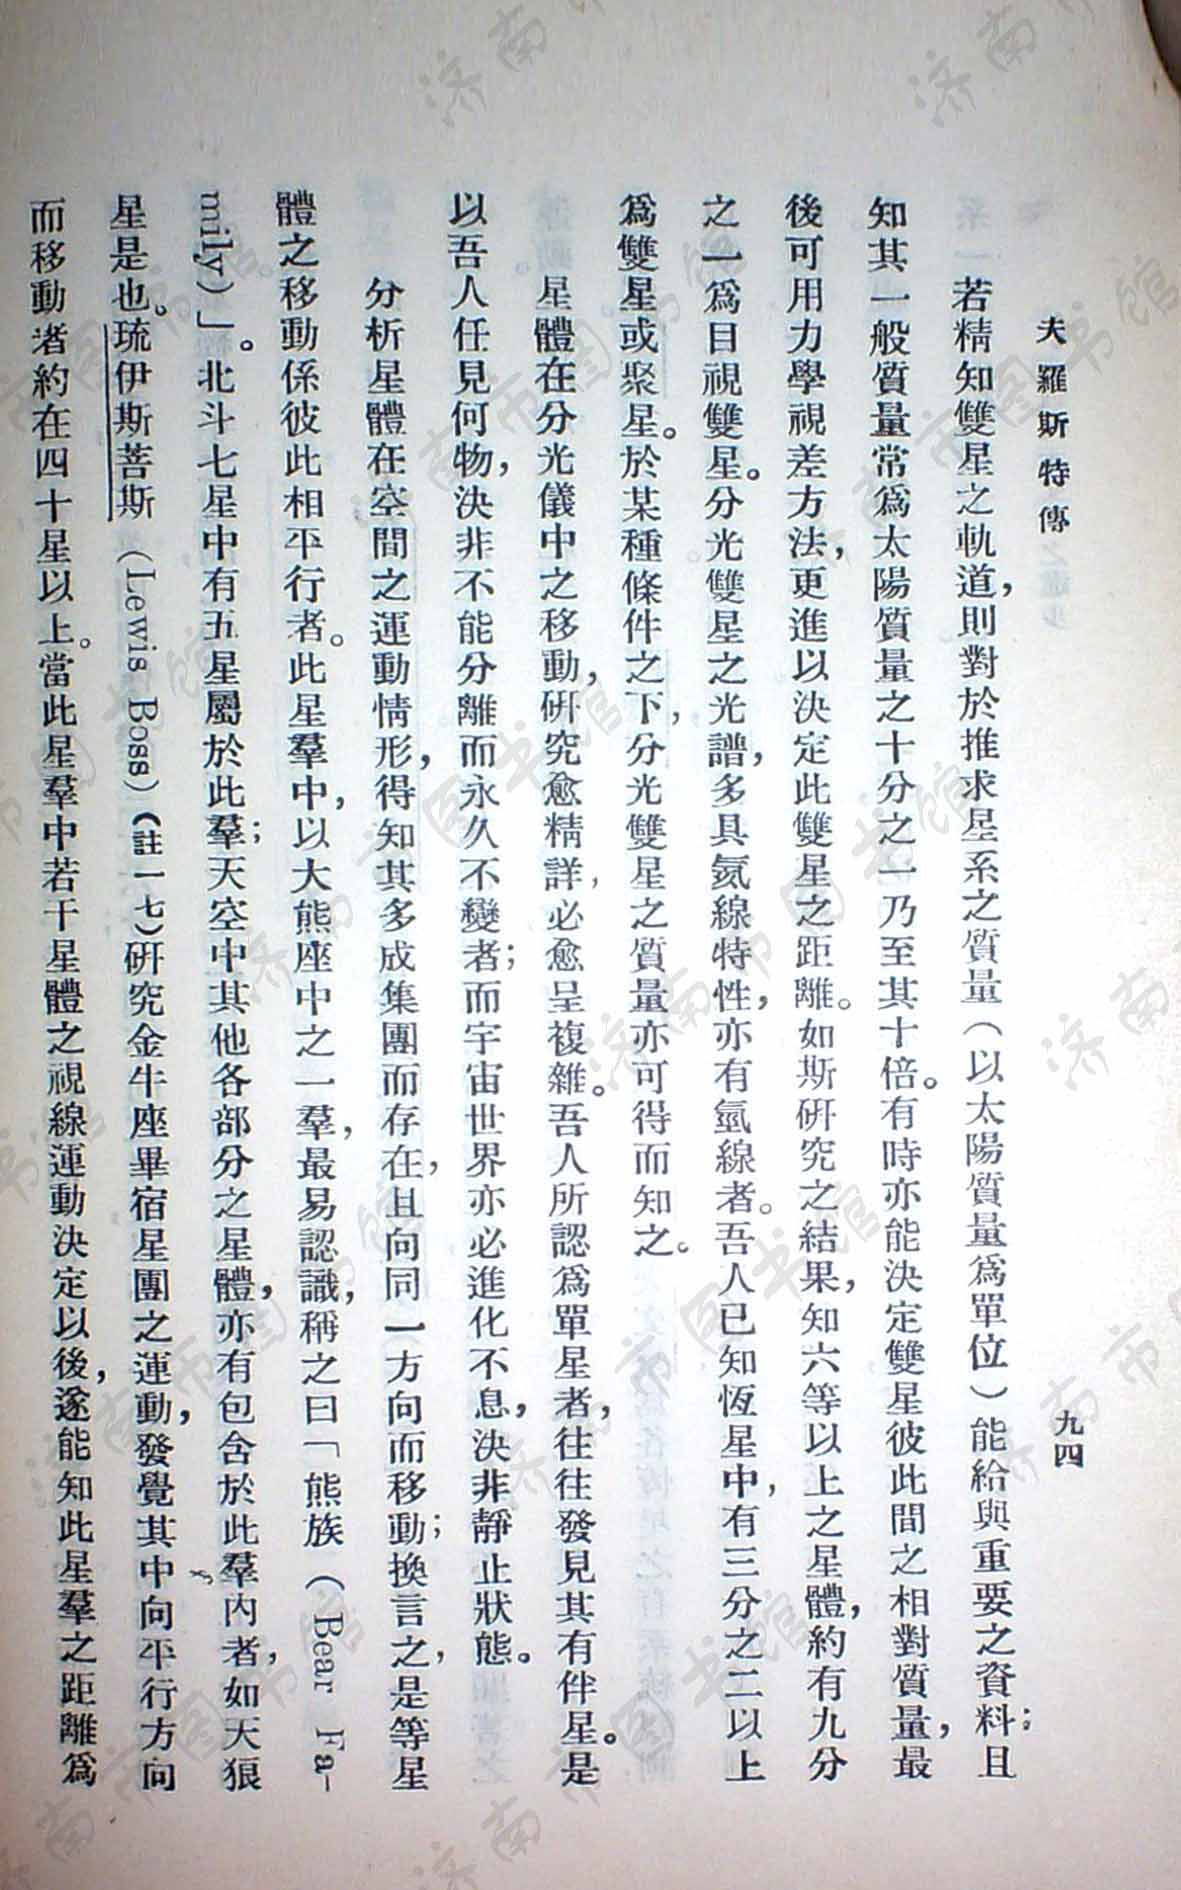 夫羅斯特傳
九四
若精知雙星之軌道，則對於推求星系之質量（以太陽質量爲單位）能給與重要之資料；且
知其一般質量常爲太陽質量之十分之一乃至其十倍。有時亦能決定雙星彼此間之相對質量，最
後可用力學視差方法，更進以決定此雙星之距離。如斯研究之結果，知六等以上之星體，約有九分
之一爲目視雙星。分光雙星之光譜，多具氦線特性，亦有氫線者。吾人已知恆星中，有三分之二以上
爲雙星或聚星。於某種條件之下，分光雙星之質量亦可得而知之。
星體在分光儀中之移動，研究愈精詳，必愈呈複雜。吾人所認爲單星者，往往發見其有伴星。是
以吾人任見何物，決非不能分離而永久不變者；而宇宙世界亦必進化不息，決非靜止狀態。
分析星體在空間之運動情形，得知其多成集團而存在，且向同一方向而移動；換言之，是等星
體之移動係彼此相平行者。此星羣中，以大熊座中之一羣，最易認識，稱之曰「熊族（Bear Fa-
mily）」。北斗七星中有五星屬於此羣；天空中其他各部分之星體，亦有包含於此羣內者，如天狼
星是也。琉伊斯菩斯（Lewis Boss）（註一七）研究金牛座畢宿星團之運動，發覺其中向平行方向
而移動者約在四十星以上。當此星羣中若干星體之視線運動決定以後，遂能知此星羣之距離爲
济南市图书馆